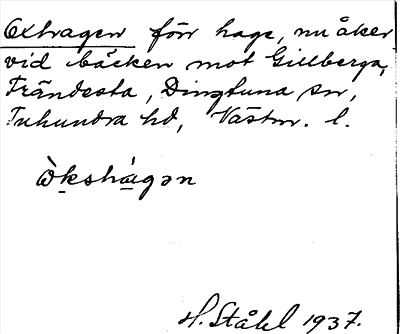 Oxhagen förr hage, nu åker
vid bäcken mot Gillberga,
Frändesta, Dingtuna sn,
Tuhundra hd, Västm. l.
Ò̱kshá̱gən
H. Ståhl 1937.